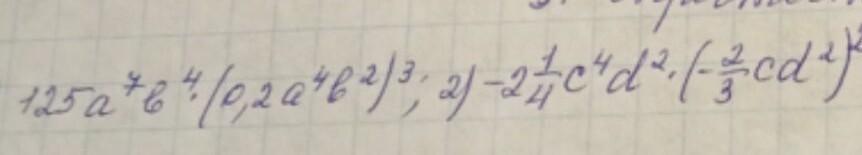 125a⁷b⁴·(0,2a⁴b²)³; 2) -2 1/4 c⁴d²·(-2/3 cd²)²